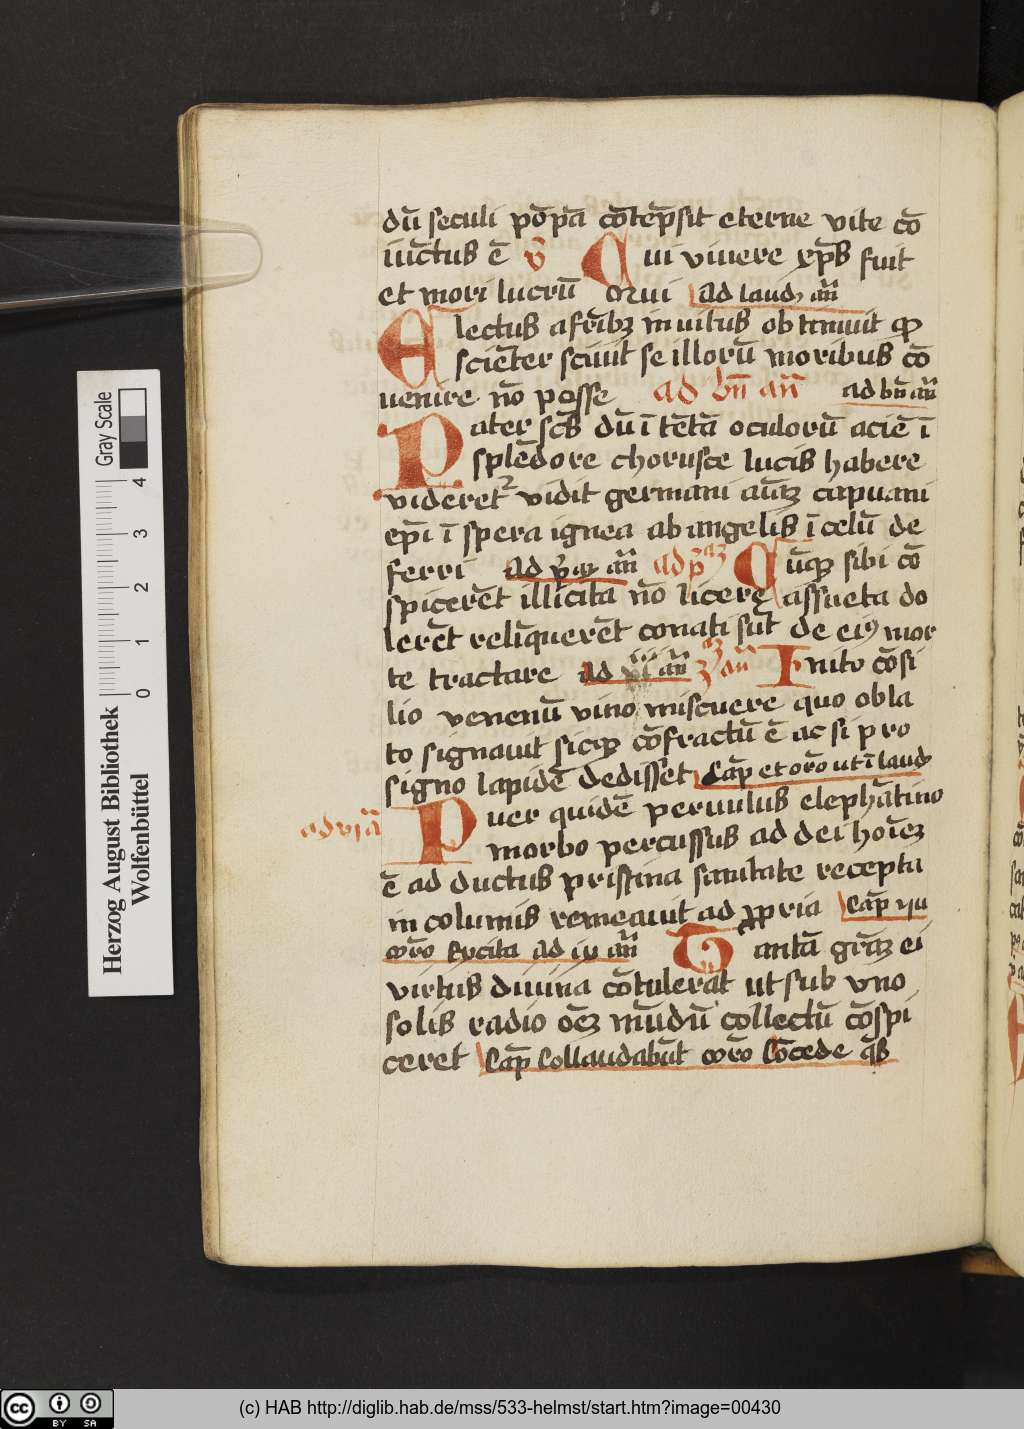 dū seculi pōpā cōtēpsit eterne vite cō
iūctus ē v̄ Cui viuere xp̄s fuit
et mori lucrū Qui ad laud an̄
Electus a frīb3 inuitus obtinuit qȝ
sciēter sciuit se illorū moribus cō
uenire nō posse ad bn̄ an̄ ad bn̄ an̄
Pater scs̄ dū ītētā oculorū aciē ī
splēdore chorusce lucis habere
videret vidit germani aīa3 capuani
ep̄i ī spera ignea ab angelis ī celū de
ferri ad p̄a3 an̄ ad p̄a3 Cūq3 sibi cō
spicerēt illicita nō licere assueta do
lerēt relīquerēt conati sūt de ei9 mor
te tractare ad an̄ 3a3 an̄ Inito cōsi
lio venenū vino miscuere quo obla
to signauit sicq3 cōfractū ē ac si pro
signo lapidē dedisset Cap̄ et orō ut ī laud
ad v̄ia3 Puer quidē peruulus elephātino
morbo percussus ad dei hoīe3
ē adductus pristina sanitate recepta
incolumis remeauit ad pp̄ria Cap̄
orō Excita ad iū an̄ Tantā grā3 ei
virtus diuina cōtulerat ut sub vno
solis radio oē3 mūdū collectū cōspi
ceret Cap̄ Collaudabūt orō Cōcede qs̄
Gray Scale
0 1 2 3 4
Herzog August Bibliothek
Wolfenbüttel
cc BY SA
(c) HAB http://diglib.hab.de/mss/533-helmst/start.htm?image=00430